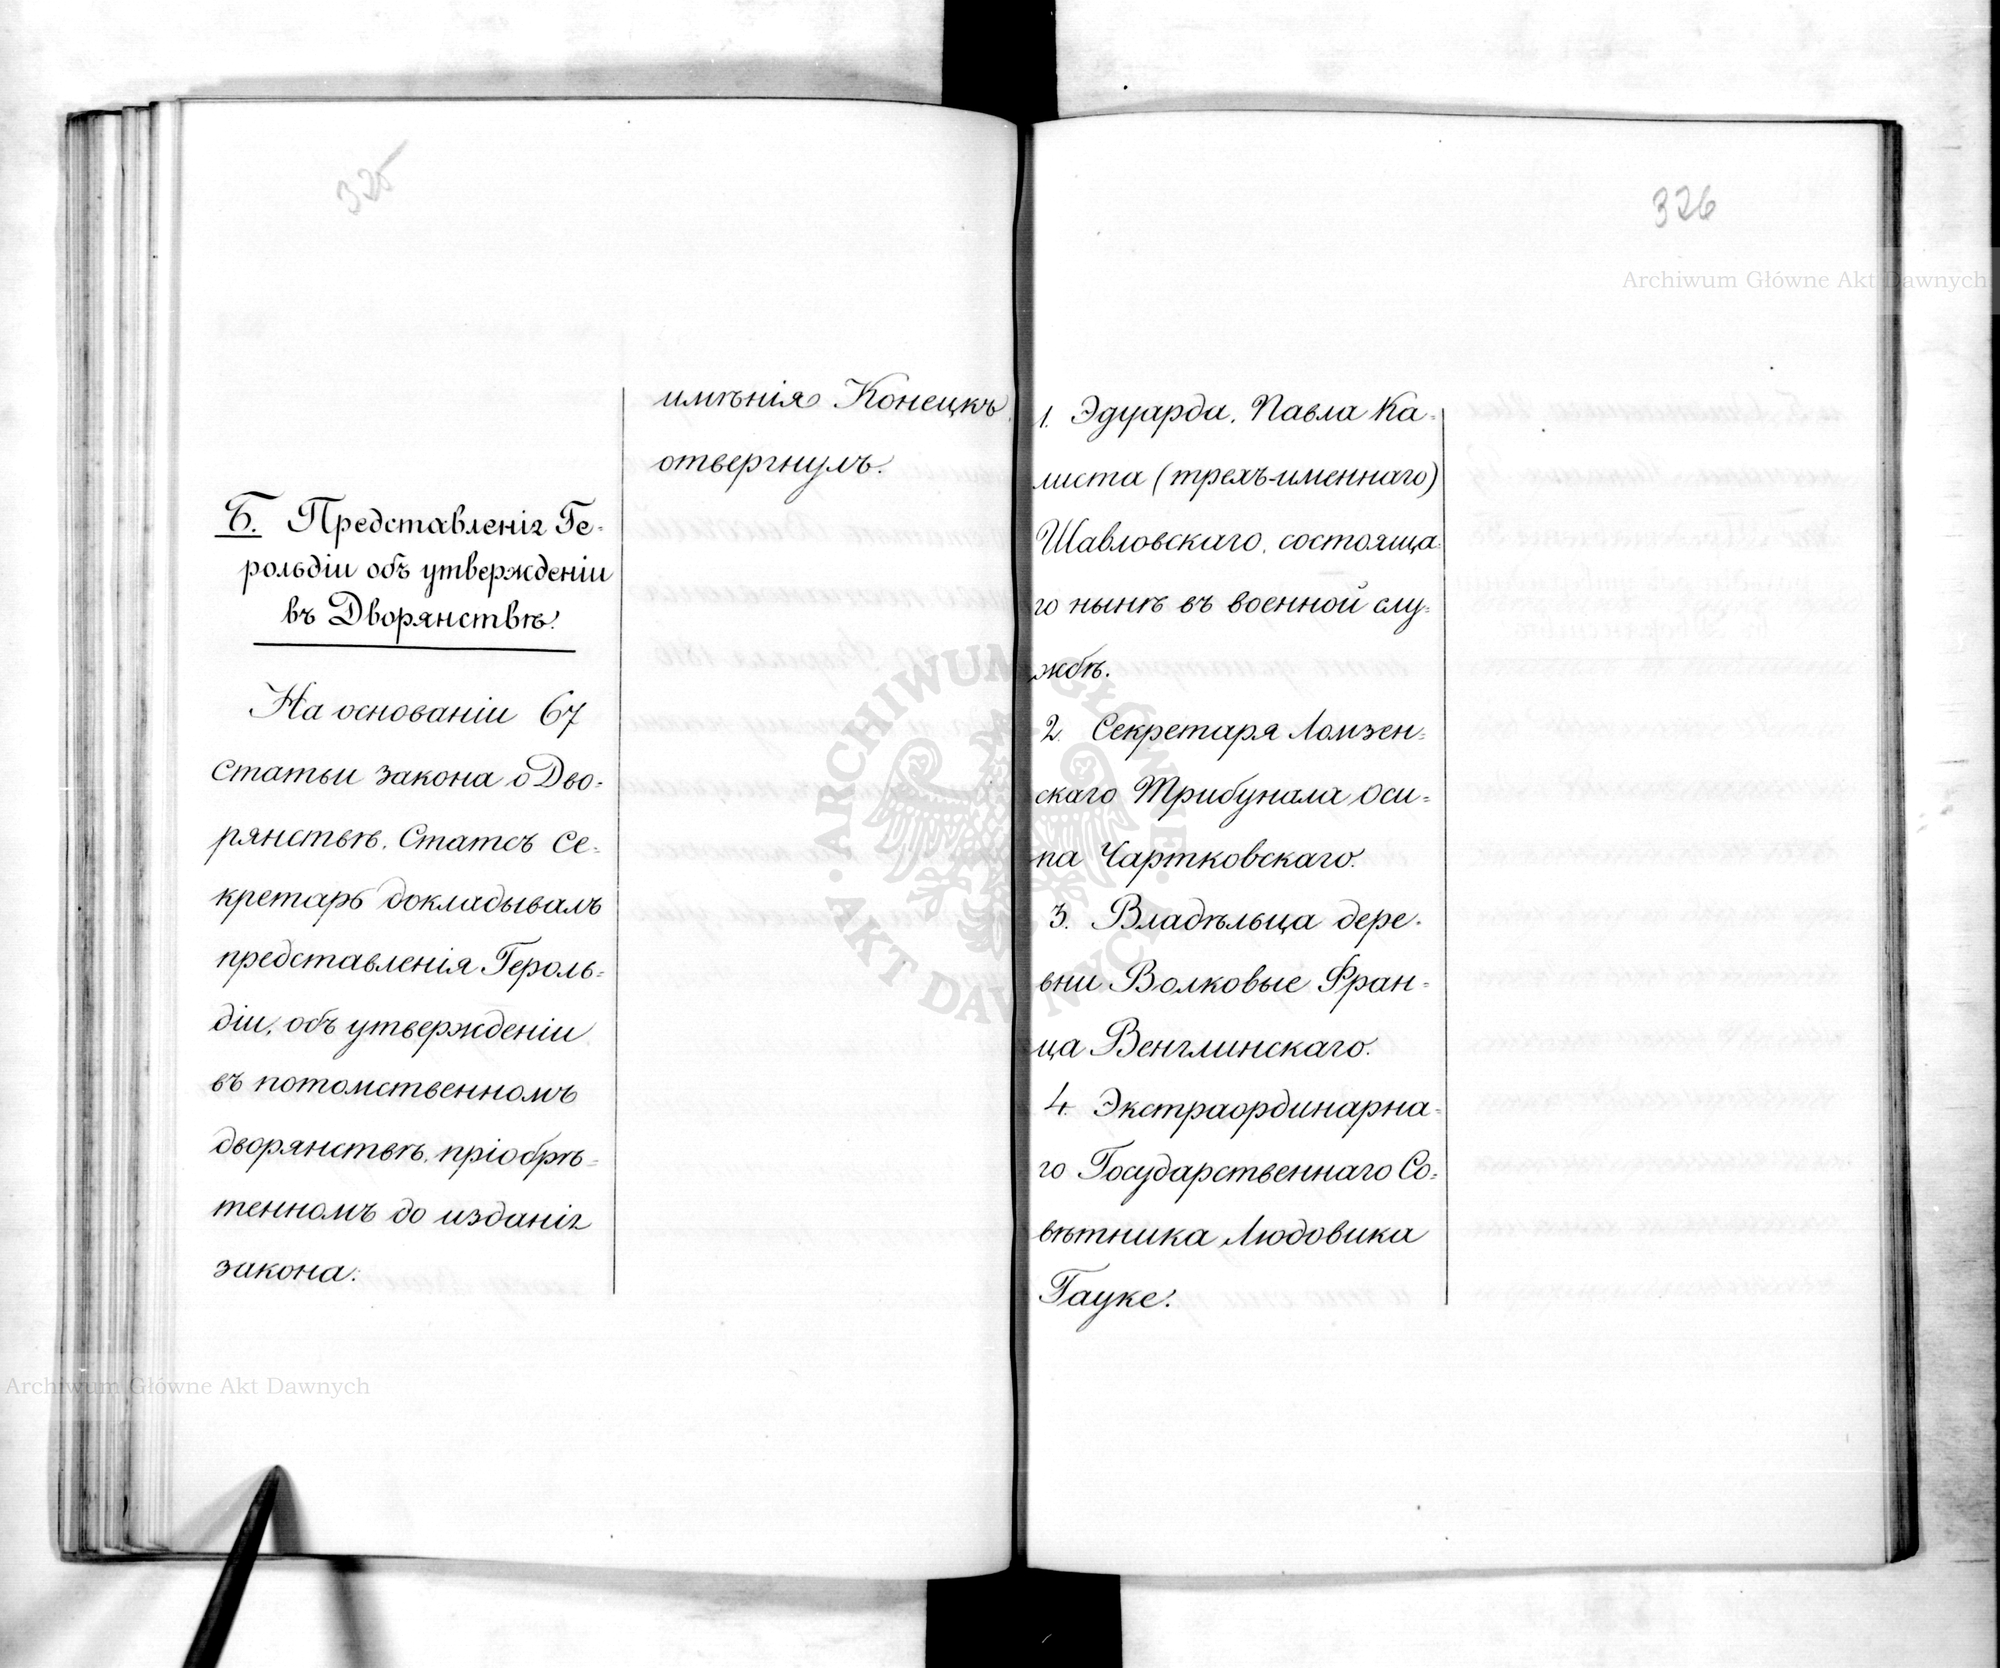 325
имѣнія Конецкъ
отвергнулъ.
Б. Представленіе Ге-
рольдіи объ утвержденіи
въ Дворянствѣ.
На основаніи 67
статьи закона о Дво-
рянствѣ, Статсъ Се-
кретарь докладывалъ
представленія Героль-
діи, объ утвержденіи
въ потомственномъ
дворянствѣ, пріобрѣ-
тенномъ до изданія
закона:
326
1. Эдуарда, Павла Ка-
листа (трехъ-именнаго)
Шавловскаго, состояща-
го нынѣ въ военной слу-
жбѣ.
2. Секретаря Ломзен-
скаго Трибунала Оси-
па Чартковскаго.
3. Владѣльца дере-
вни Волковые Фран-
ца Венглинскаго.
4. Экстраординарна-
го Государственнаго Со-
вѣтника Людовика
Гауке.
Archiwum Główne Akt Dawnych
Archiwum Główne Akt Dawnych
ARCHIWUM GŁÓWNE
AKT DAWNYCH